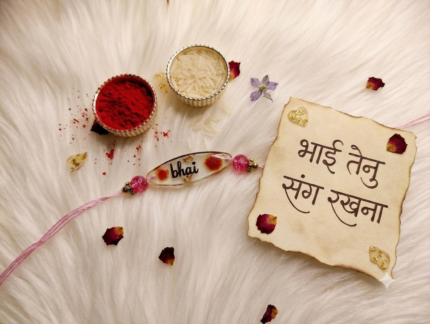 bhai
भाई तेनु
संग रखना